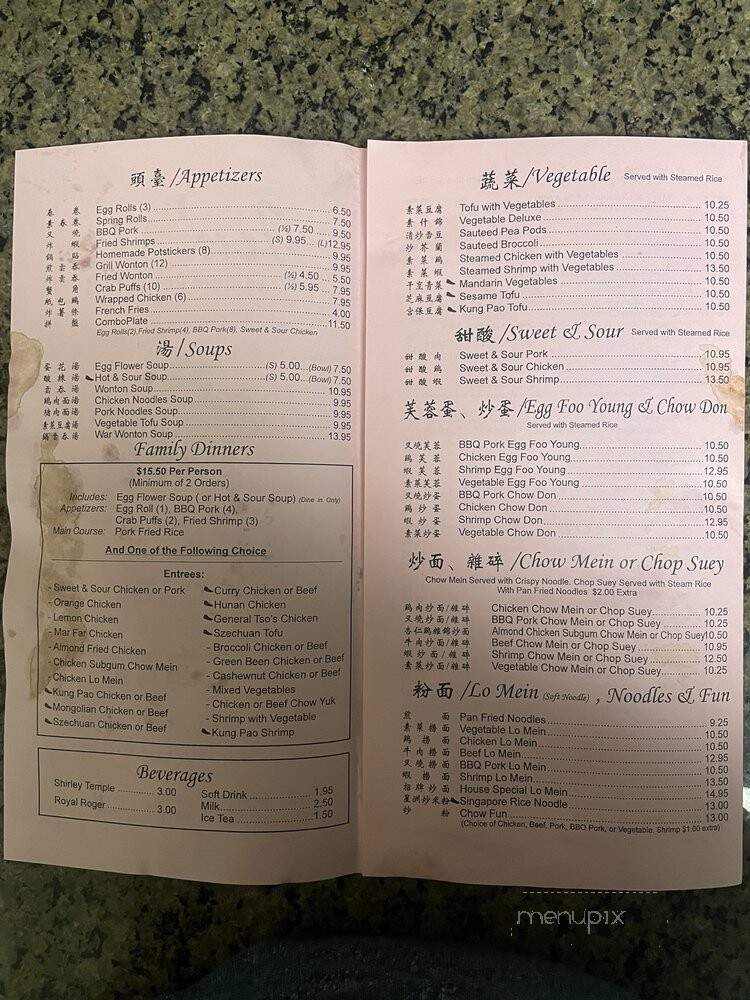 頭臺/Appetizers
春卷 Egg Rolls (3) 6.50
素春卷 Spring Rolls 7.50
叉燒 BBQ Pork (½) 7.50 9.50
炸蝦 Fried Shrimps (S) 9.95 (L)12.95
鍋貼 Homemade Potstickers (8) 9.95
煎雲吞 Grill Wonton (12) 9.95
炸雲吞 Fried Wonton (½) 4.50 5.50
蟹角 Crab Puffs (10) (½) 5.95 7.95
紙包鷄 Wrapped Chicken (6) 7.95
炸薯條 French Fries 4.00
拼盤 ComboPlate 11.50
Egg Rolls(2),Fried Shrimp(4), BBQ Pork(8), Sweet & Sour Chicken
湯/Soups
蛋花湯 Egg Flower Soup (S) 5.00 (Bowl) 7.50
酸辣湯 Hot & Sour Soup (S) 5.00 (Bowl) 7.50
雲吞湯 Wonton Soup 10.95
鷄肉面湯 Chicken Noodles Soup 9.95
豬肉面湯 Pork Noodles Soup 9.95
素菜豆腐湯 Vegetable Tofu Soup 9.95
鍋雲吞湯 War Wonton Soup 13.95
Family Dinners
$15.50 Per Person
(Minimum of 2 Orders)
Includes: Egg Flower Soup ( or Hot & Sour Soup) (Dine in Only)
Appetizers: Egg Roll (1), BBQ Pork (4),
Crab Puffs (2), Fried Shrimp (3)
Main Course: Pork Fried Rice
And One of the Following Choice
Entrees:
- Sweet & Sour Chicken or Pork
- Orange Chicken
- Lemon Chicken
- Mar Far Chicken
- Almond Fried Chicken
- Chicken Subgum Chow Mein
- Chicken Lo Mein
Kung Pao Chicken or Beef
Mongolian Chicken or Beef
Szechuan Chicken or Beef
Curry Chicken or Beef
Hunan Chicken
General Tso's Chicken
Szechuan Tofu
- Broccoli Chicken or Beef
- Green Been Chicken or Beef
- Cashewnut Chicken or Beef
- Mixed Vegetables
- Chicken or Beef Chow Yuk
- Shrimp with Vegetable
Kung Pao Shrimp
Beverages
Shirley Temple 3.00
Royal Roger 3.00
Soft Drink 1.95
Milk 2.50
Ice Tea 1.50
蔬菜/Vegetable Served with Steamed Rice
素菜豆腐 Tofu with Vegetables 10.25
素什錦 Vegetable Deluxe 10.50
清炒雪豆 Sauteed Pea Pods 10.50
炒芥蘭 Sauteed Broccoli 10.50
素菜鷄 Steamed Chicken with Vegetables 10.50
素菜蝦 Steamed Shrimp with Vegetables 13.50
干烹青菜 Mandarin Vegetables 10.50
芝麻豆腐 Sesame Tofu 10.50
宮保豆腐 Kung Pao Tofu 10.50
甜酸/Sweet & Sour Served with Steamed Rice
甜酸肉 Sweet & Sour Pork 10.95
甜酸鷄 Sweet & Sour Chicken 10.95
甜酸蝦 Sweet & Sour Shrimp 13.50
芙蓉蛋、炒蛋/Egg Foo Young & Chow Don
Served with Steamed Rice
叉燒芙蓉 BBQ Pork Egg Foo Young 10.50
鷄芙蓉 Chicken Egg Foo Young 10.50
蝦芙蓉 Shrimp Egg Foo Young 12.95
素菜芙蓉 Vegetable Egg Foo Young 10.50
叉燒炒蛋 BBQ Pork Chow Don 10.50
鷄炒蛋 Chicken Chow Don 10.50
蝦炒蛋 Shrimp Chow Don 12.95
素菜炒蛋 Vegetable Chow Don 10.50
炒面、雜碎 /Chow Mein or Chop Suey
Chow Mein Served with Crispy Noodle. Chop Suey Served with Steam Rice
With Pan Fried Noodles $2.00 Extra
鷄肉炒面/雜碎 Chicken Chow Mein or Chop Suey 10.25
叉燒炒面/雜碎 BBQ Pork Chow Mein or Chop Suey 10.25
杏仁鷄雜錦炒面 Almond Chicken Subgum Chow Mein or Chop Suey 10.50
牛肉炒面/雜碎 Beef Chow Mein or Chop Suey 10.95
蝦炒面/雜碎 Shrimp Chow Mein or Chop Suey 12.50
素菜炒面/雜碎 Vegetable Chow Mein or Chop Suey 10.25
粉面/Lo Mein (Soft Noodle) , Noodles & Fun
煎面 Pan Fried Noodles 9.25
素菜撈面 Vegetable Lo Mein 10.50
鷄撈面 Chicken Lo Mein 10.50
牛肉撈面 Beef Lo Mein 12.95
叉燒撈面 BBQ Pork Lo Mein 10.50
蝦撈面 Shrimp Lo Mein 13.50
招牌炒面 House Special Lo Mein 14.95
星洲炒米粉 Singapore Rice Noodle 13.00
炒粉 Chow Fun 13.00
(Choice of Chicken, Beef, Pork, BBQ Pork, or Vegetable. Shrimp $1.00 extra)
menupix